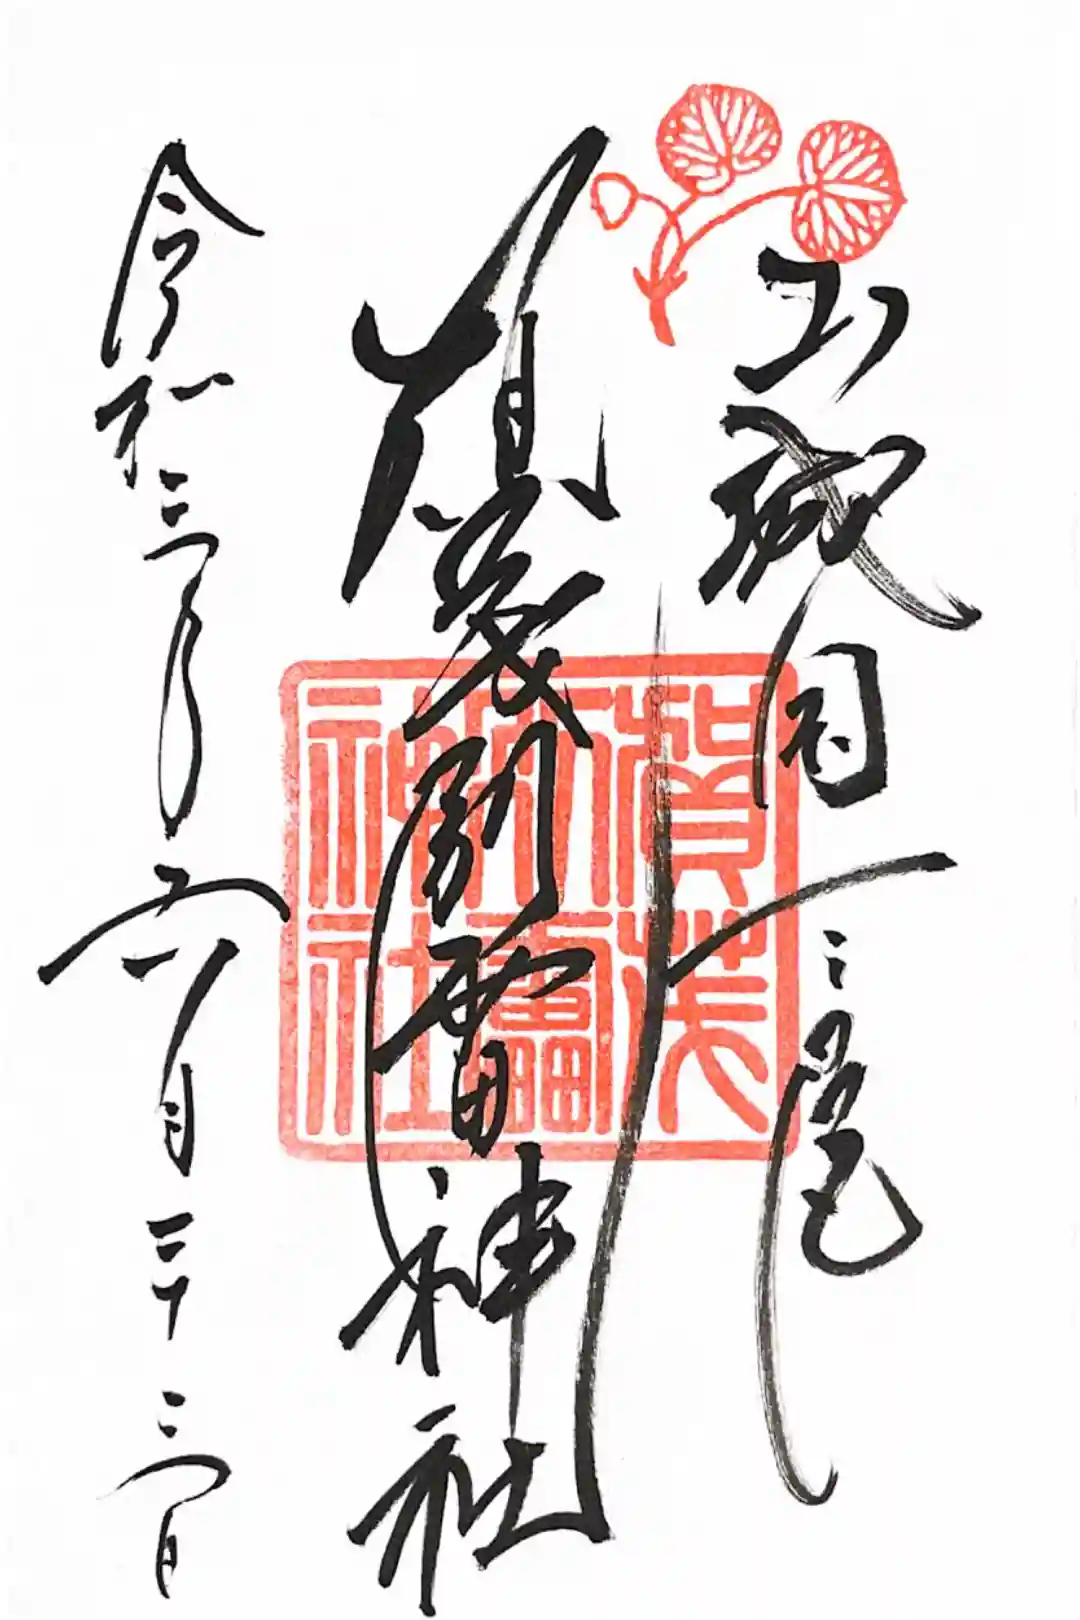 山城国一之宮
賀茂別雷神社
令和三年五月二十三日
賀茂
別雷
神社